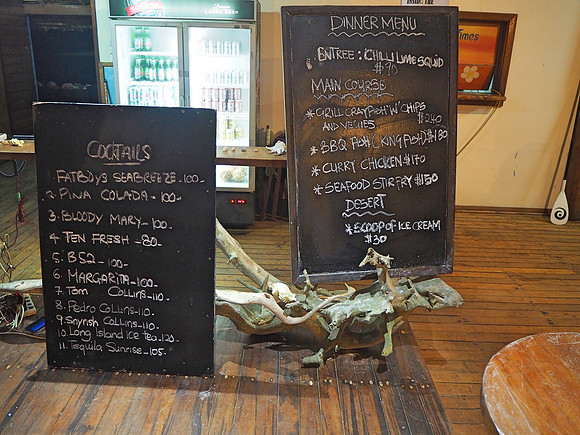 COCKTAILS
1. FATBOYS SEABREEZE-100-
2. PINA COLADA-100-
3. BLOODY MARY-100-
4. TEN FRESH-80-
5. B52-100-
6. MARGARITA-100-
7. Tom Collins-110-
8. Pedro Collins-110-
9. Spynsh Collins-110-
10. Long Island Ice Tea.120-
11. Tequila Sunrise-105-
DINNER MENU
ENTREE: CHILLI LIME SQUID
$90
MAIN COURSE
*GRILL CRAYFISH 'N' CHIPS
AND VEGIES $240
*BBQ FISH (KING FISH) $180
*CURRY CHICKEN $170
*SEAFOOD STIR FRY $150
DESERT
*SCOOP OF ICE CREAM
$30
INSIDE THE
Times